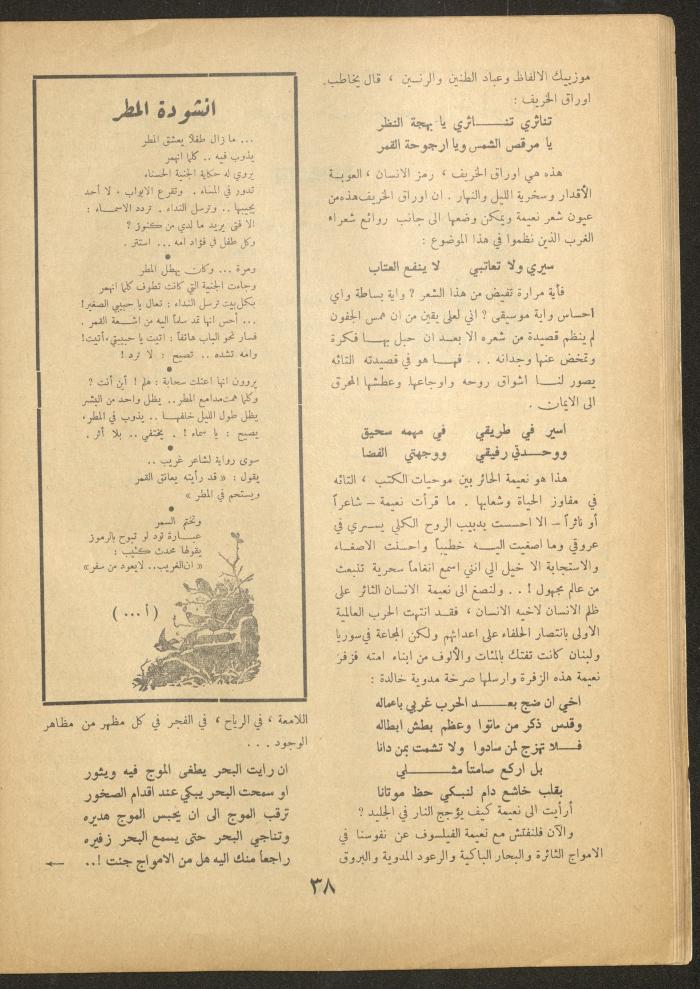 موزييك الالفاظ وعباد الطنين والرنين ، قال يخاطب
اوراق الخريف :
تناثري تنــــاثري يا بهجة النظر
يا مرقص الشمس ويا ارجوحة القمر
هذه هي اوراق الخريف ، رمز الانسان ، العوبة
الأقدار وسخرية الليل والنهار . ان اوراق الخريف هذه من
عيون شعر نعيمة ويمكن وضعها الى جانب روائع شعراء
الغرب الذين نظموا في هذا الموضوع :
سيري ولا تعاتبي لا ينفع العتاب
فأية مرارة تفيض من هذا الشعر ? واية بساطة واي
احساس واية موسيقى ? اني لعلى يقين من ان همس الجفون
لم ينظم قصيدة من شعره الا بعد ان حبل بهـا فكرة
وتمخض عنها وجدانه . . . فهـا هو في قصيدته التائه
يصور لنــا اشواق روحه واوجاعها وعطشها المحرق
الى الايمان .
اسير في طريقي في مهمه سحيق
ووحــدتي رفيقي ووجهتي الفضا
هذا هو نعيمة الحائر بين موحيات الكتب ، التائه
في مفاوز الحياة وشعابها . ما قرأت نعيمة - شاعراً
أو ناثراً - الا احسست بدبيب الروح الكلي يسري في
عروقي وما اصغيت اليـه خطيباً واحسنت الاصغاء
والاستجابة الا خيل الي انني اسمع انغاماً سحرية تنبعث
من عالم مجهول ! . . ولنصغ الى نعيمة الانسان الثائر على
ظلم الانسان لاخيه الانسان ، فقـد انتهت الحرب العالمية
الاولى بانتصار الحلفاء على اعدائهم ولكن المجاعة في سوريا
ولبنان كانت تفتك بالمئات والألوف من ابناء امته فزفر
نعيمة هذه الزفرة وارسلها صرخة مدوية خالدة :
اخي ان ضج بعـــد الحرب غربي باعماله
وقدس ذكر من ماتوا وعظم بطش ابطاله
فـــلا تهزج لمن سادوا ولا تشمت بمن دانا
بل اركع صامتاً مثـــــلي
بقلب خاشع دام لنبكي حظ موتانا
أرأيت الى نعيمة كيف يؤجج النار في الجليد ?
والآن فلنفتش مع نعيمة الفيلسوف عن نفوسنا في
الامواج الثائرة والبحار الباكية والرعود المدوية والبروق
انشودة المطر
... ما زال طفلاً يعشق المطر
يذوب فيه .. كلما انهمر
يروي له حكاية الجنية الحسناء
تدور في المساء . وتقرع الابواب ، لا احد
يجيبها .. وترسل النداء . تردد الاسمـاء :
الا فتى يريد ما لدي من كنوز ?
وكل طفل في فؤاد امه ... استتر .
ومرة ... وكان يهطل المطر
وجاءت الجنية التي كانت تطوف كلما انهمر
بكل بيت ترسل النداء : تعال يا حبيبي الصغير!
... أحس انها تمد سلماً اليه من اشـعة القمر .
فسار نحو الباب هاتفاً : اتيت يا حبيبتي،أتيت!
وامه تشده .. تصيح : لا ترد !
يروون انها اعتلت سحابة : هلم ! أين أنت ?
وكلما همت مدامع المطر .. يظل واحد من البشر
يظل طول الليل خلفهـا .. يذوب في المطر،
يصيح : يا سماء ! . يختفي .. بلا أثر .
سوى رواية لشاعر غريب ..
يقول : « قد رأيته يعانق القمر
ويستحم في المطر »
ونختم السمر
عبـارة تود لو تبوح بالرموز
يقولها محدث كئيب :
« ان الغريب.. لا يعود من سفر»
( أ ... )
اللامعة ، في الرياح ، في الفجر في كل مظهر من مظاهر
الوجود . . .
ان رايت البحر يطغى الموج فيه ويثور
او سمعت البحر يبكي عند اقدام الصخور
ترقب الموج الى ان يحبس الموج هديره
وتناجي البحر حتى يسمع البحر زفيره
راجعاً منك اليه هل من الامواج جئت !..
٣٨